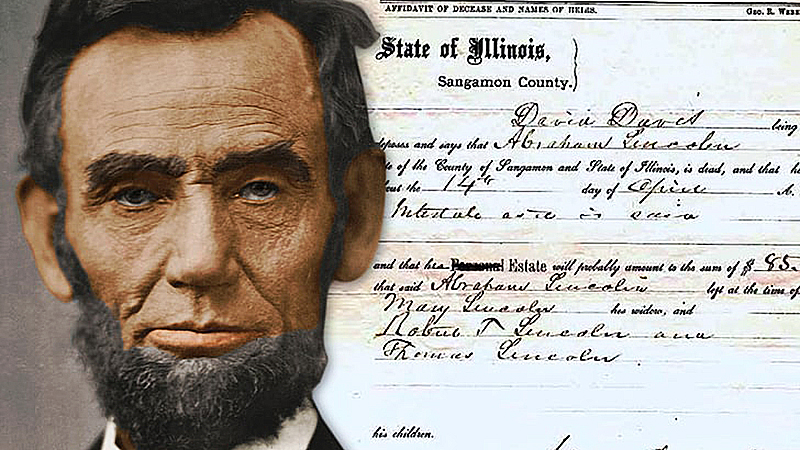 AFFIDAVIT OF DECEASE AND NAMES OF HEIRS. GEO. R. WEBE
State of Illinois,
Sangamon County.
David Davis being
deposes and says that Abraham Lincoln
te of the County of Sangamon and State of Illinois, is dead, and that he
out the 14th day of April A.
Intestate as is said
and that his Personal Estate will probably amount to the sum of $ 85
that said Abraham Lincoln left at the time of
Mary Lincoln his widow, and
Robert T Lincoln and
Thomas Lincoln
his children.